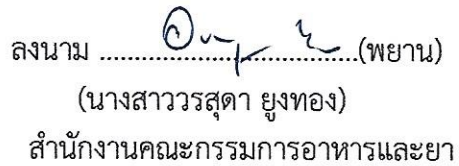 ลงนาม ..................................(พยาน)
(นางสาววรสุดา ยูงทอง)
สำนักงานคณะกรรมการอาหารและยา